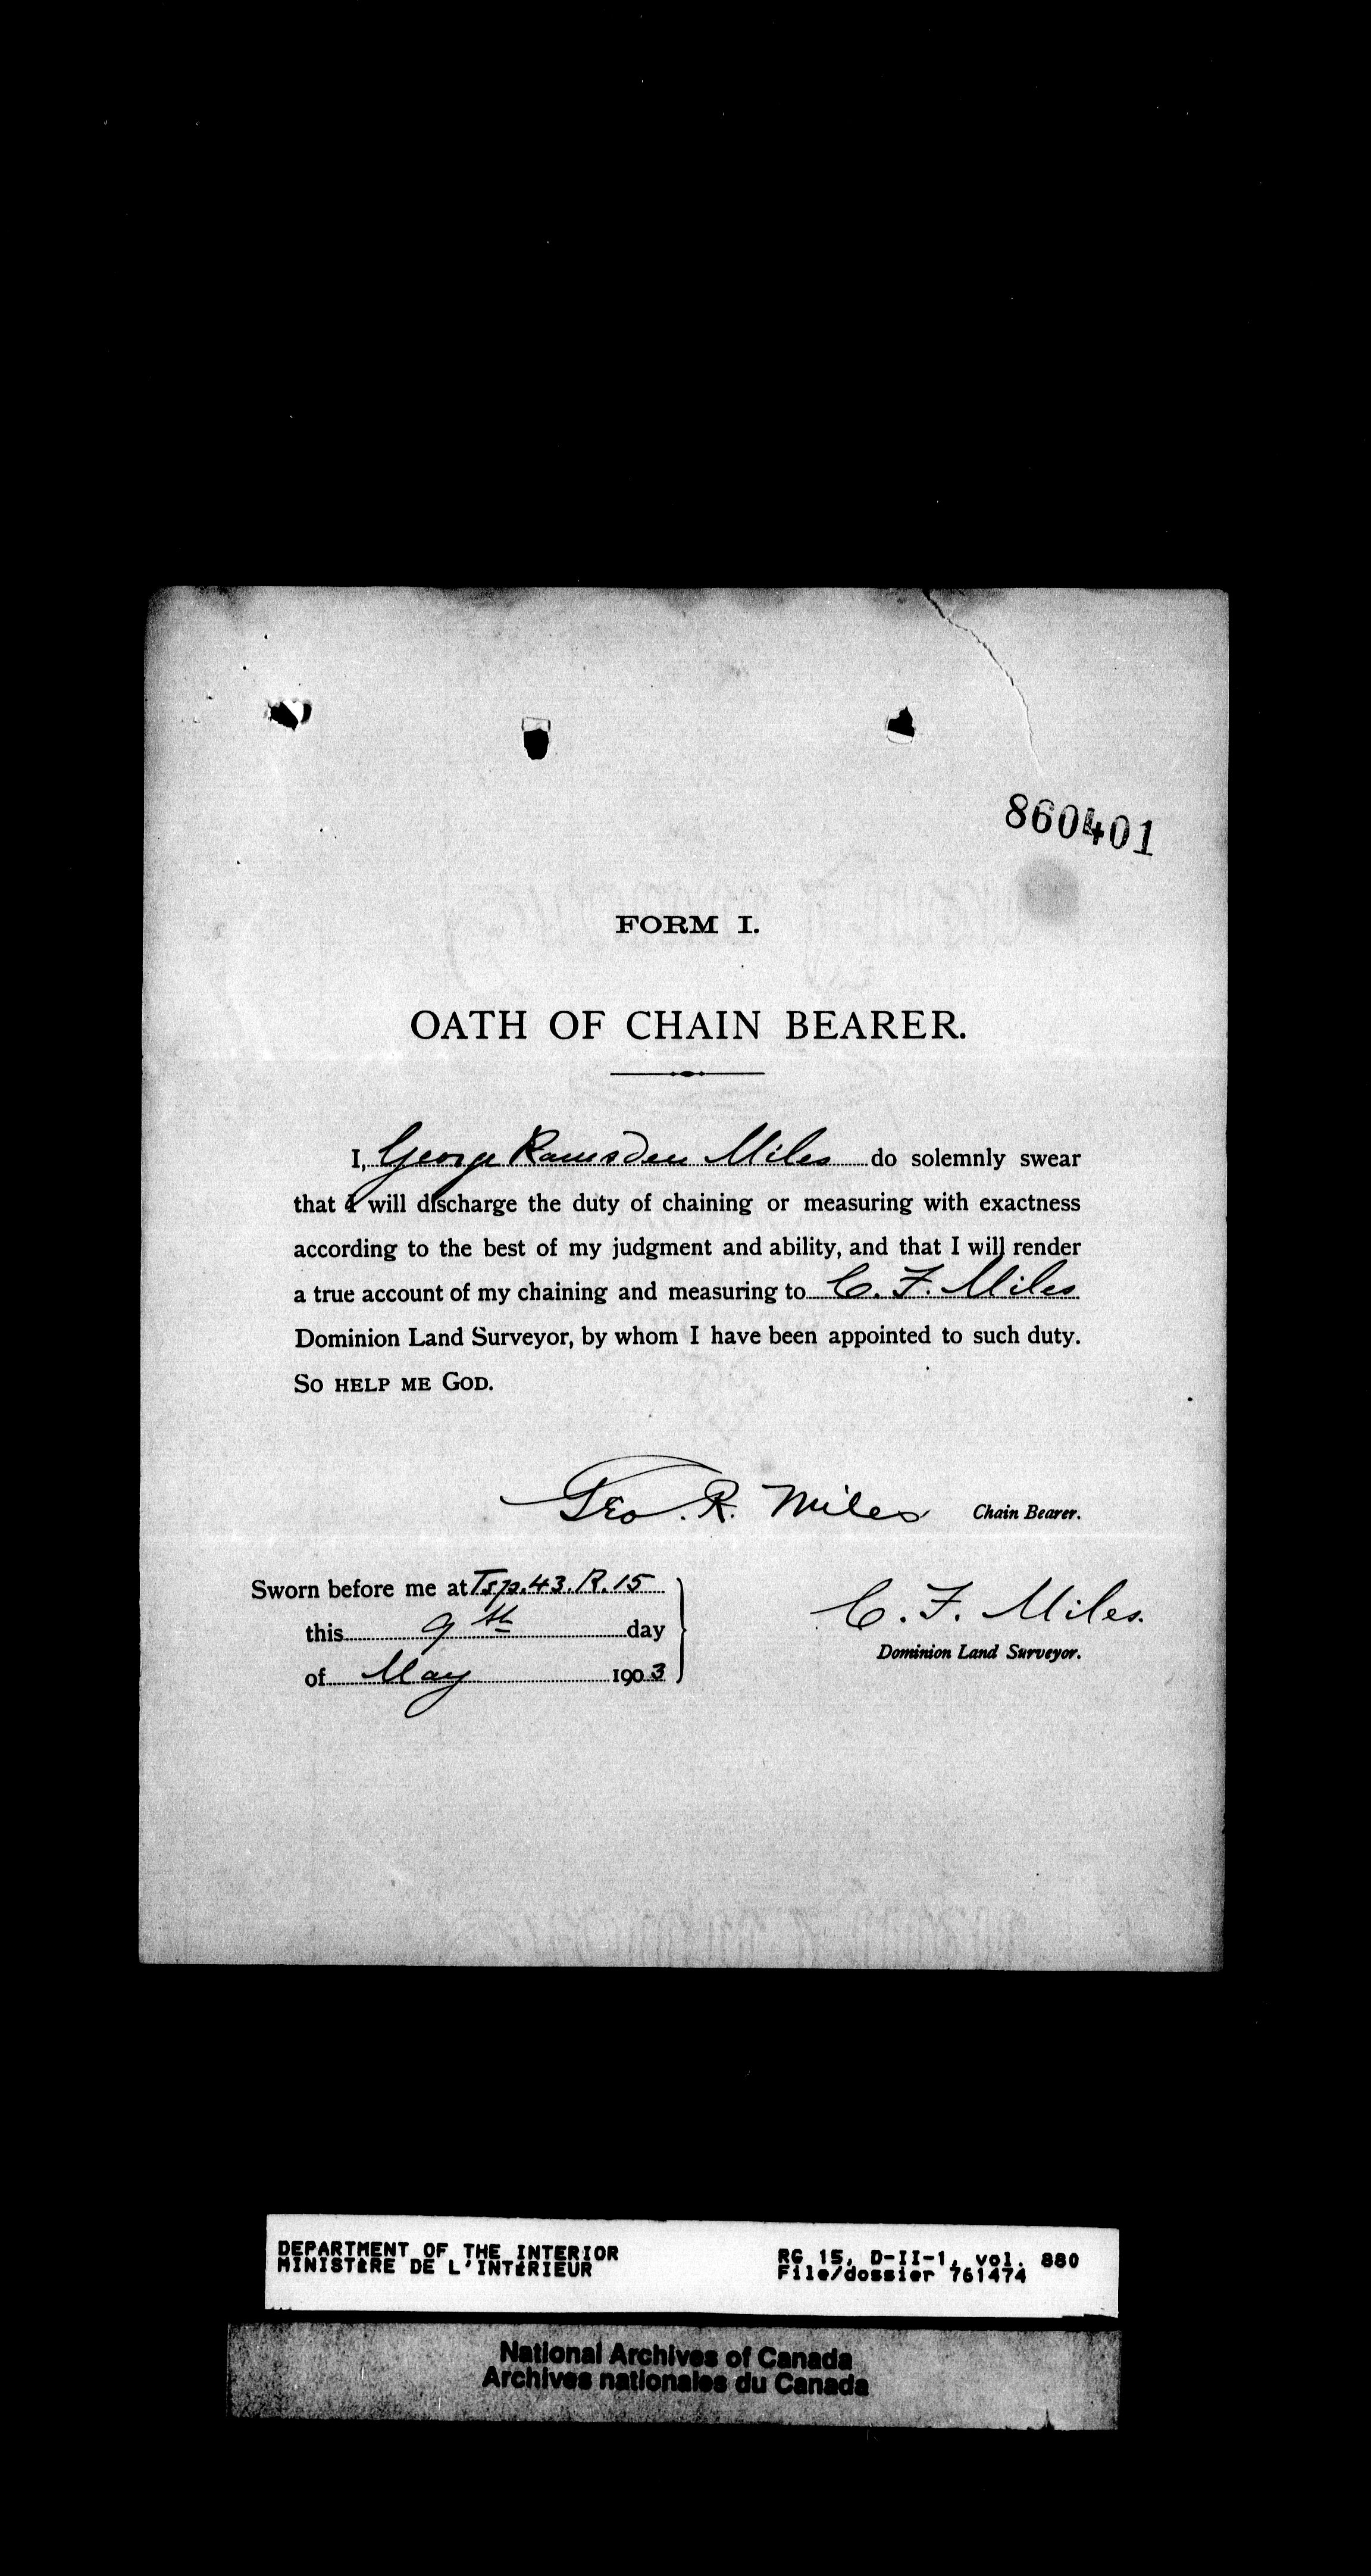 860401
FORM I.
OATH OF CHAIN BEARER.
I, George Ramsden Miles do solemnly swear
that I will discharge the duty of chaining or measuring with exactness
according to the best of my judgment and ability, and that I will render
a true account of my chaining and measuring to C. F. Miles
Dominion Land Surveyor, by whom I have been appointed to such duty.
SO HELP ME GOD.
Geo. R. Miles Chain Bearer.
Sworn before me at Tsp. 43. R. 15
this 9th day
of May 1903
C. F. Miles.
Dominion Land Surveyor.
DEPARTMENT OF THE INTERIOR
MINISTÈRE DE L'INTÉRIEUR
RG 15, D-II-1, vol. 880
File/dossier 761474
National Archives of Canada
Archives nationales du Canada